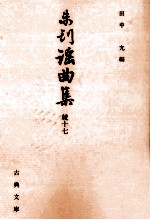 田中允編
未刊謡曲集
続十七
古典文庫